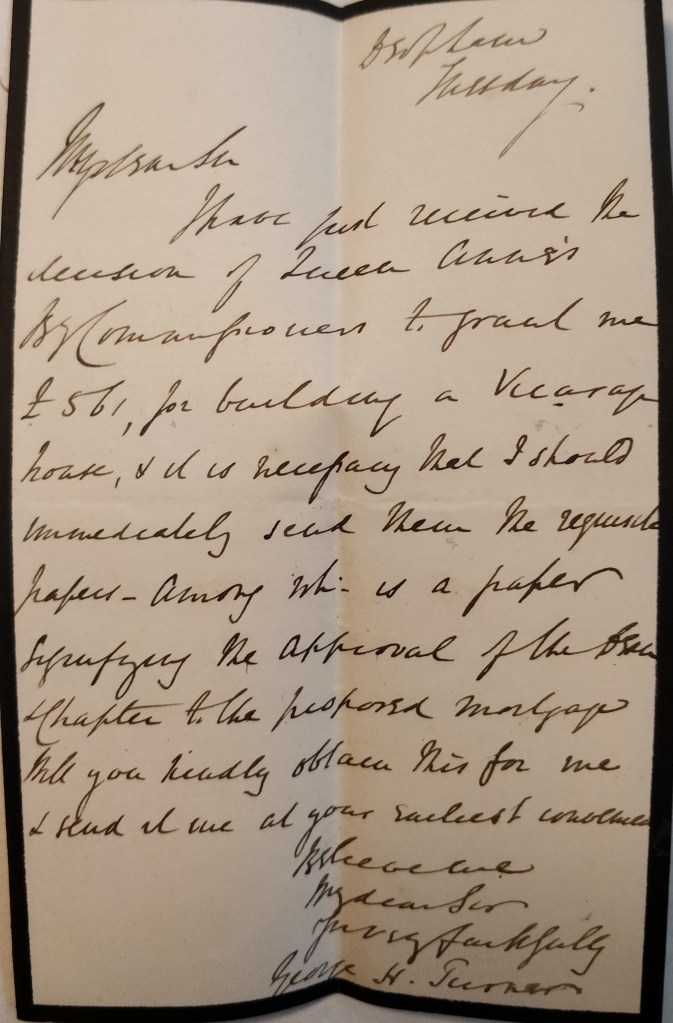 Tuesday.
My dear Sir
I have just received the
decision of Queen Anne's
By Commissioners to grant me
£561, for building a Vicarage
house, & it is necessary that I should
immediately send them the requisite
papers - Among wh- is a paper
signifying the approval of the Dean
& Chapter to the proposed mortgage
Will you kindly obtain this for me
& send it me at your earliest convenience
Believe me
My dear Sir
Yrs very faithfully
George H. Turner